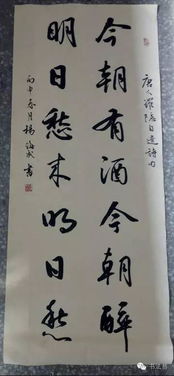 唐人罗隐自遣诗句
今朝有酒今朝醉
明日愁来明日愁
丙申春月杨
书
书艺界